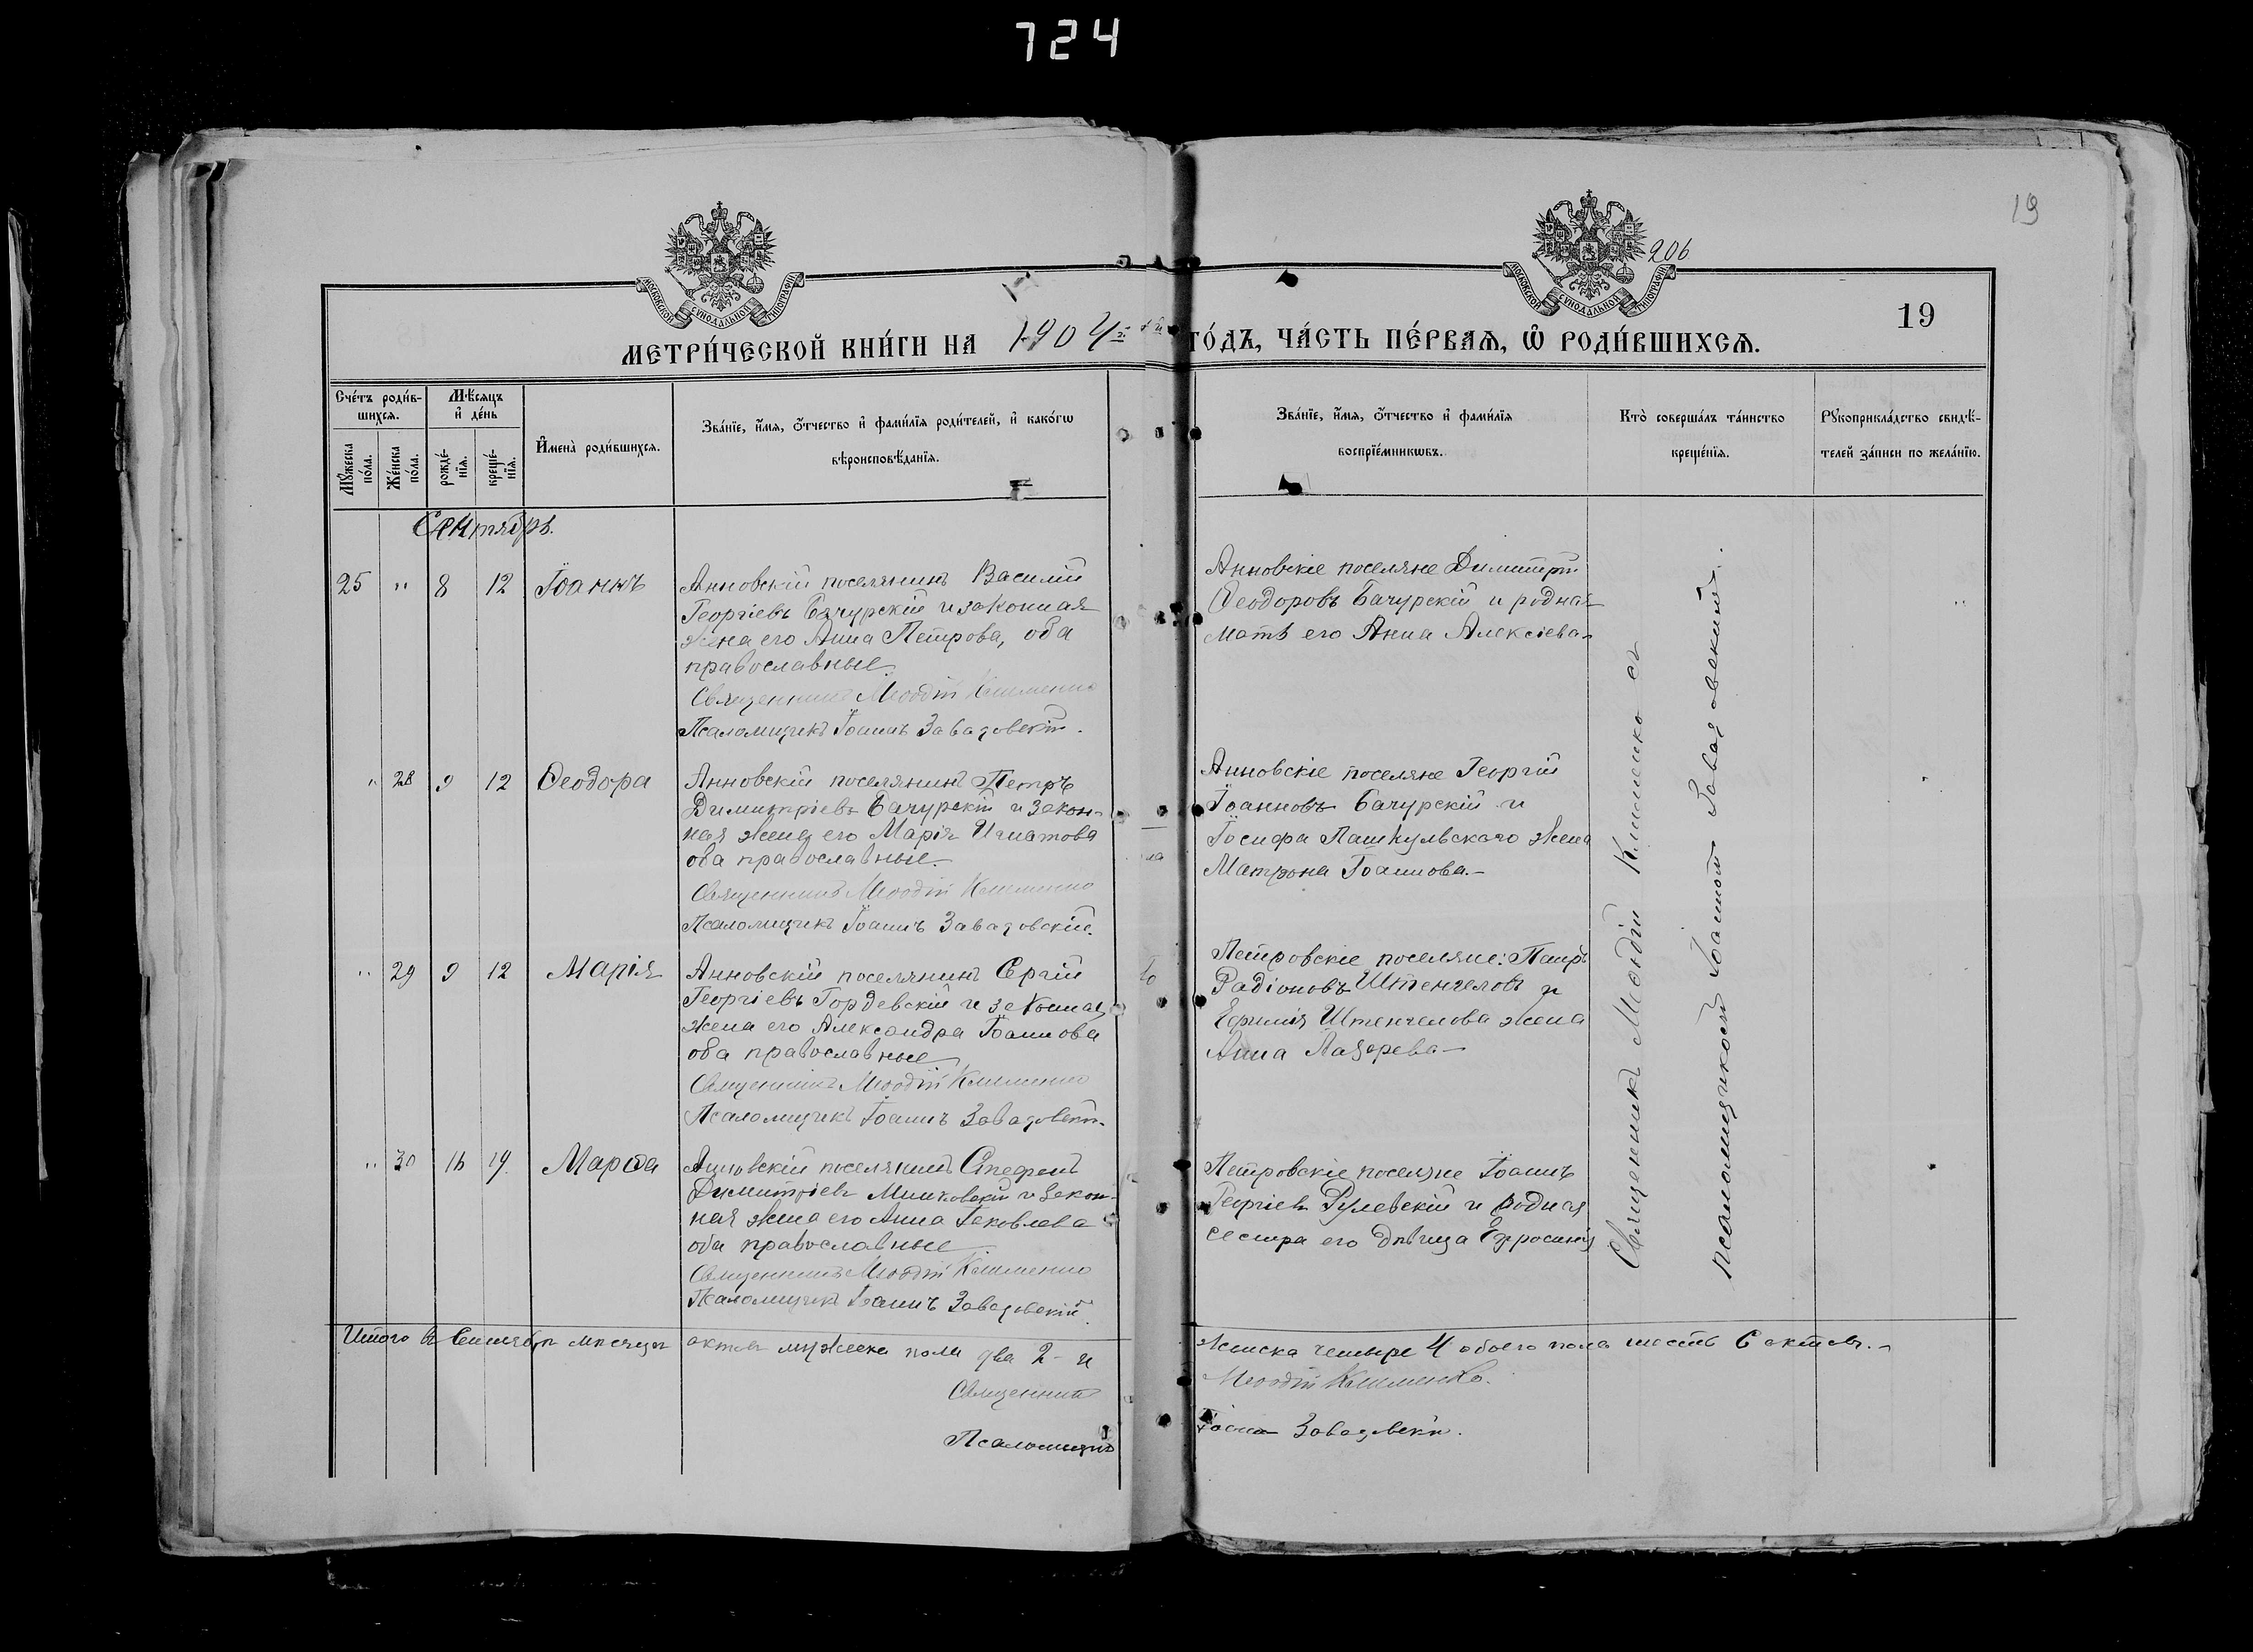 724
19
206
19
МОСКОВСКОЙ СУНОДАЛЬНОЙ ТИПОГРАФІИ
МОСКОВСКОЙ СУНОДАЛЬНОЙ ТИПОГРАФІИ
МЕТРИ́ЧЕСКОЙ КНИ́ГИ НА 1904 ГО́ДЪ, ЧА́СТЬ ПЕ́РВАѦ, Ѽ РОДИ́ВШИХСѦ.
Сче́тъ роди́в-
шихсѧ.
Мѣ́сѧцъ
и҆ де́нь
Мꙋ́жеска
по́ла.
Же́нска
по́ла.
рожде́-
нїѧ.
креще́-
нїѧ.
И҆мена̀ роди́вшихсѧ.
Зва́нїе, и҆́мѧ, ѻ҆́тчество и҆ фами́лїѧ роди́телей, и҆ како́гѡ
вѣроисповѣ́данїѧ.
Зва́нїе, и҆́мѧ, ѻ҆́тчество и҆ фами́лїѧ
воспрїе́мникѡвъ.
Кто̀ соверша́лъ та́инство
креще́нїѧ.
Рꙋкоприкла́дство свидѣ́-
телей за́писи по жела́нїю.
Сентябрь.
25 " 8 12 Іоаннъ
Анновскій поселянинъ Василій
Георгіевъ Бачурскій и законная
жена его Анна Петрова, оба
православные.
Священникъ Меѳодій Клименко
Псаломщикъ Іоаннъ Завадовскій.
Анновскіе поселяне Димитрій
Ѳеодоровъ Бачурскій и родная
мать его Анна Алексіева
" 28 9 12 Ѳеодора
Анновскій поселянинъ Петръ
Димитріевъ Бачурскій и закон-
ная жена его Марія Игнатова
оба православные.
Священникъ Меѳодій Клименко
Псаломщикъ Іоаннъ Завадовскій.
Анновскіе поселяне Георгій
Іоанновъ Бачурскій и
Іосифа Пашкульского жена
Матрона Іоаннова.-
" 29 9 12 Марія
Анновскій поселянинъ Сергій
Георгіевъ Гордевскій и законная
жена его Александра Іоаннова
оба православные
Священникъ Меѳодій Клименко
Псаломщикъ Іоаннъ Завадовскій.
Петровскіе поселяне: Петръ
Радіоновъ Штенгеловъ и
Ефимія Штенгелова жена
Анна Лазарева-
" 30 16 19. Марѳа
Анновскій поселянинъ Стефанъ
Димитріевъ Мишковскій и закон-
ная жена его Анна Іаковлева
оба православные
Священникъ Меѳодій Клименко
Псаломщикъ Іоаннъ Завадовскій.
Петровскіе поселяне Іоаннъ
Георгіевъ Рулевскій и родная
сестра его дѣвица Ефросинія
Священникъ Меѳодій Клименко съ
псаломщикомъ Іоанномъ Завадовскимъ.
Итого въ Сентябрѣ мѣсяцѣ актовъ мужеска пола два 2 - и женска четыре 4 обоего пола шесть 6 актовъ.-
Священникъ Меѳодій Клименко.
Псаломщикъ Іоаннъ Завадовскій.